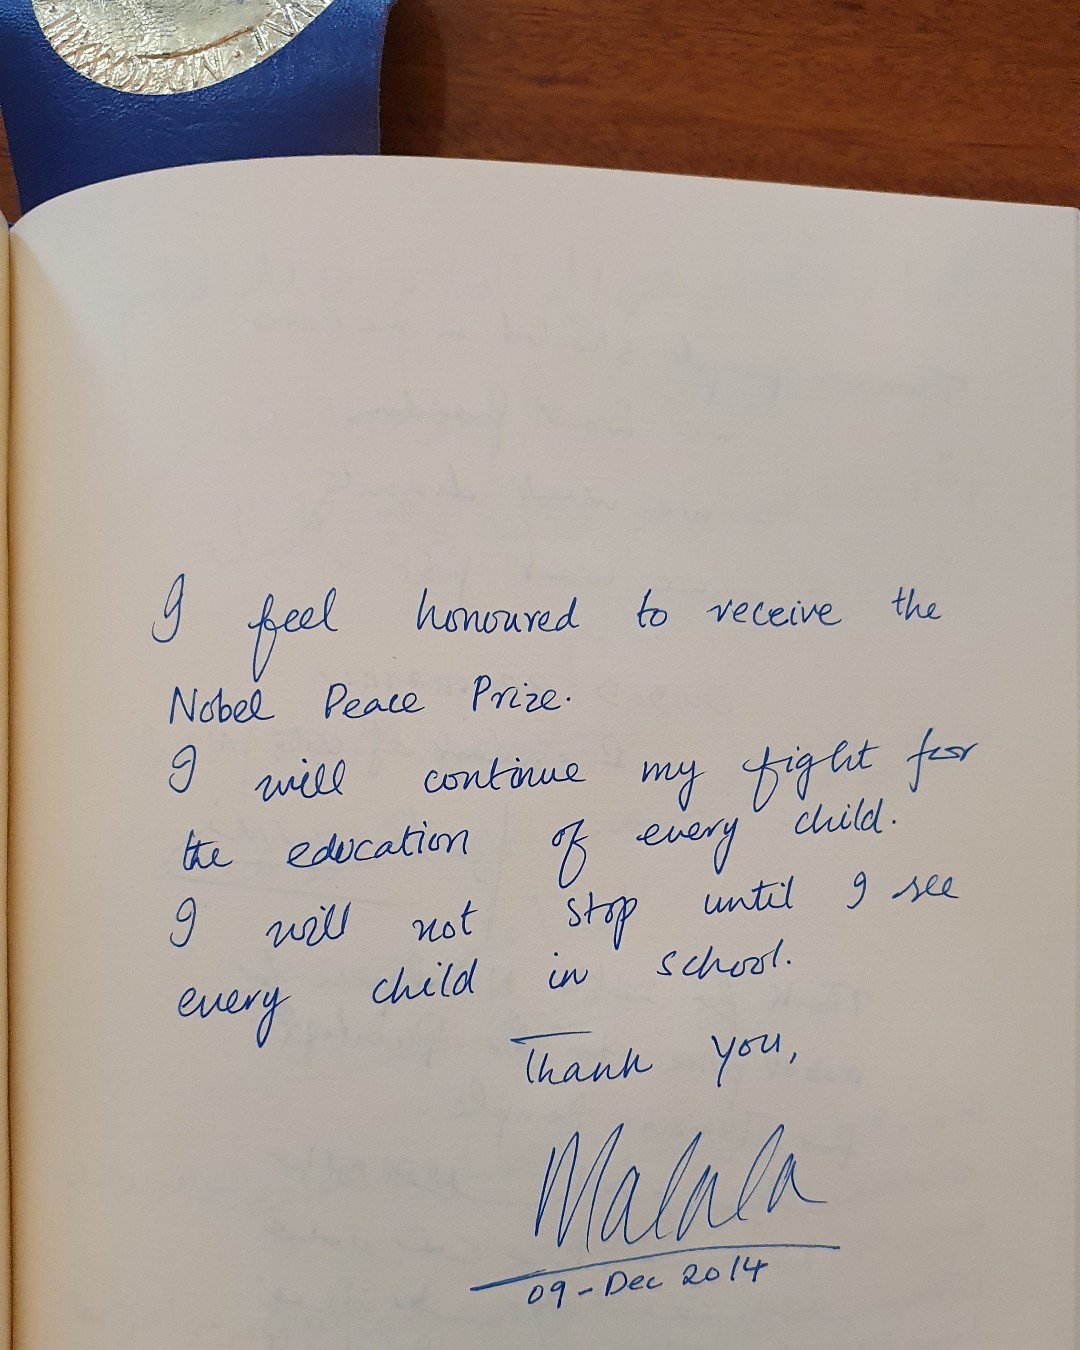 I feel honoured to receive the
Nobel Peace Prize.
I will continue my fight for
the education of every child.
I will not stop until I see
every child in school.
Thank you,
Malala
09-Dec 2014